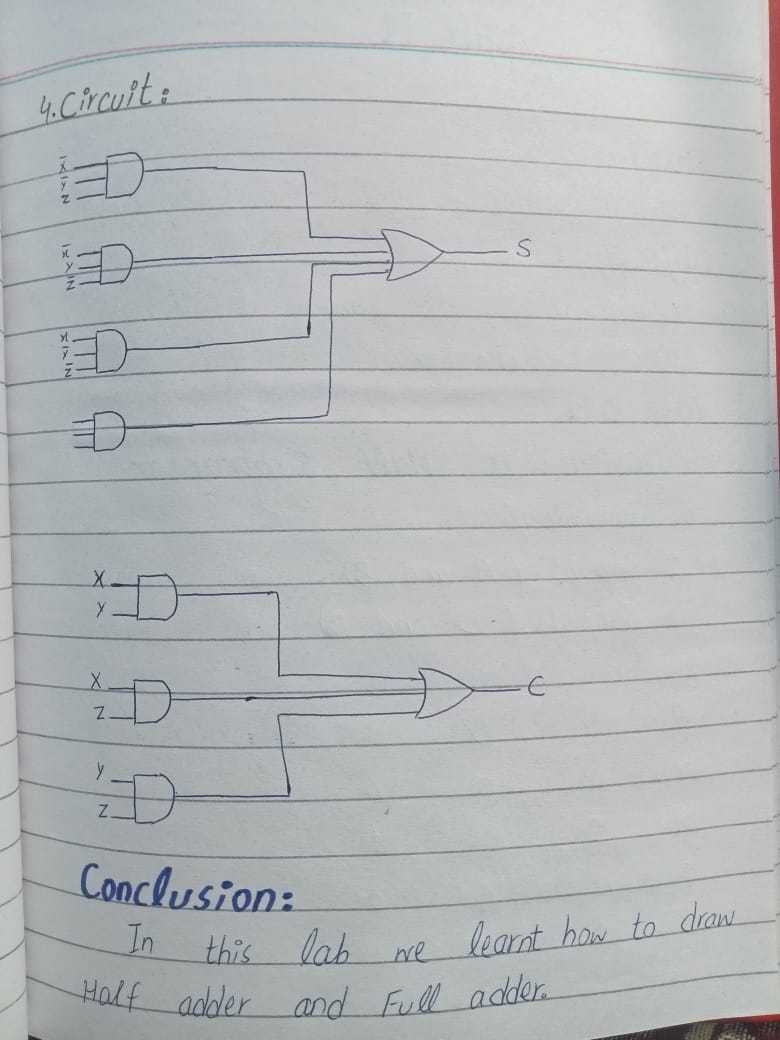 4.Circuit:
x̄
ȳ
z
x̄
y
z̄
S
x
ȳ
z̄
X
Y
X
Z
C
Y
Z
Conclusion:
In this lab we learnt how to draw
Half adder and Full adder.